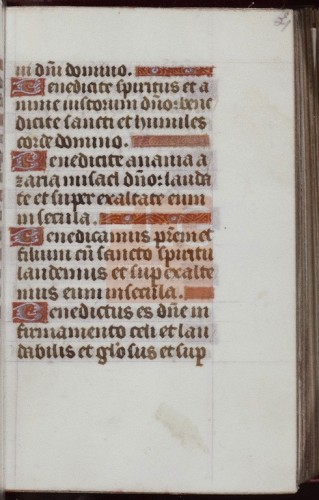 ni dn̄i domino.
Benedicite spiritus et a
nime iustorum dn̄o: bene
dicite sancti et humiles
corde domino.
Benedicite anania a
zaria misael dn̄o: lauda
te et super exaltate eum
in secula.
Benedicamus pr̄em et
filium cū sancto spiritu
laudemus et sup exalte
mus eum in secula.
Benedictus es dn̄e in
firmamento celi et lau
dabilis et gl̄osus et sup